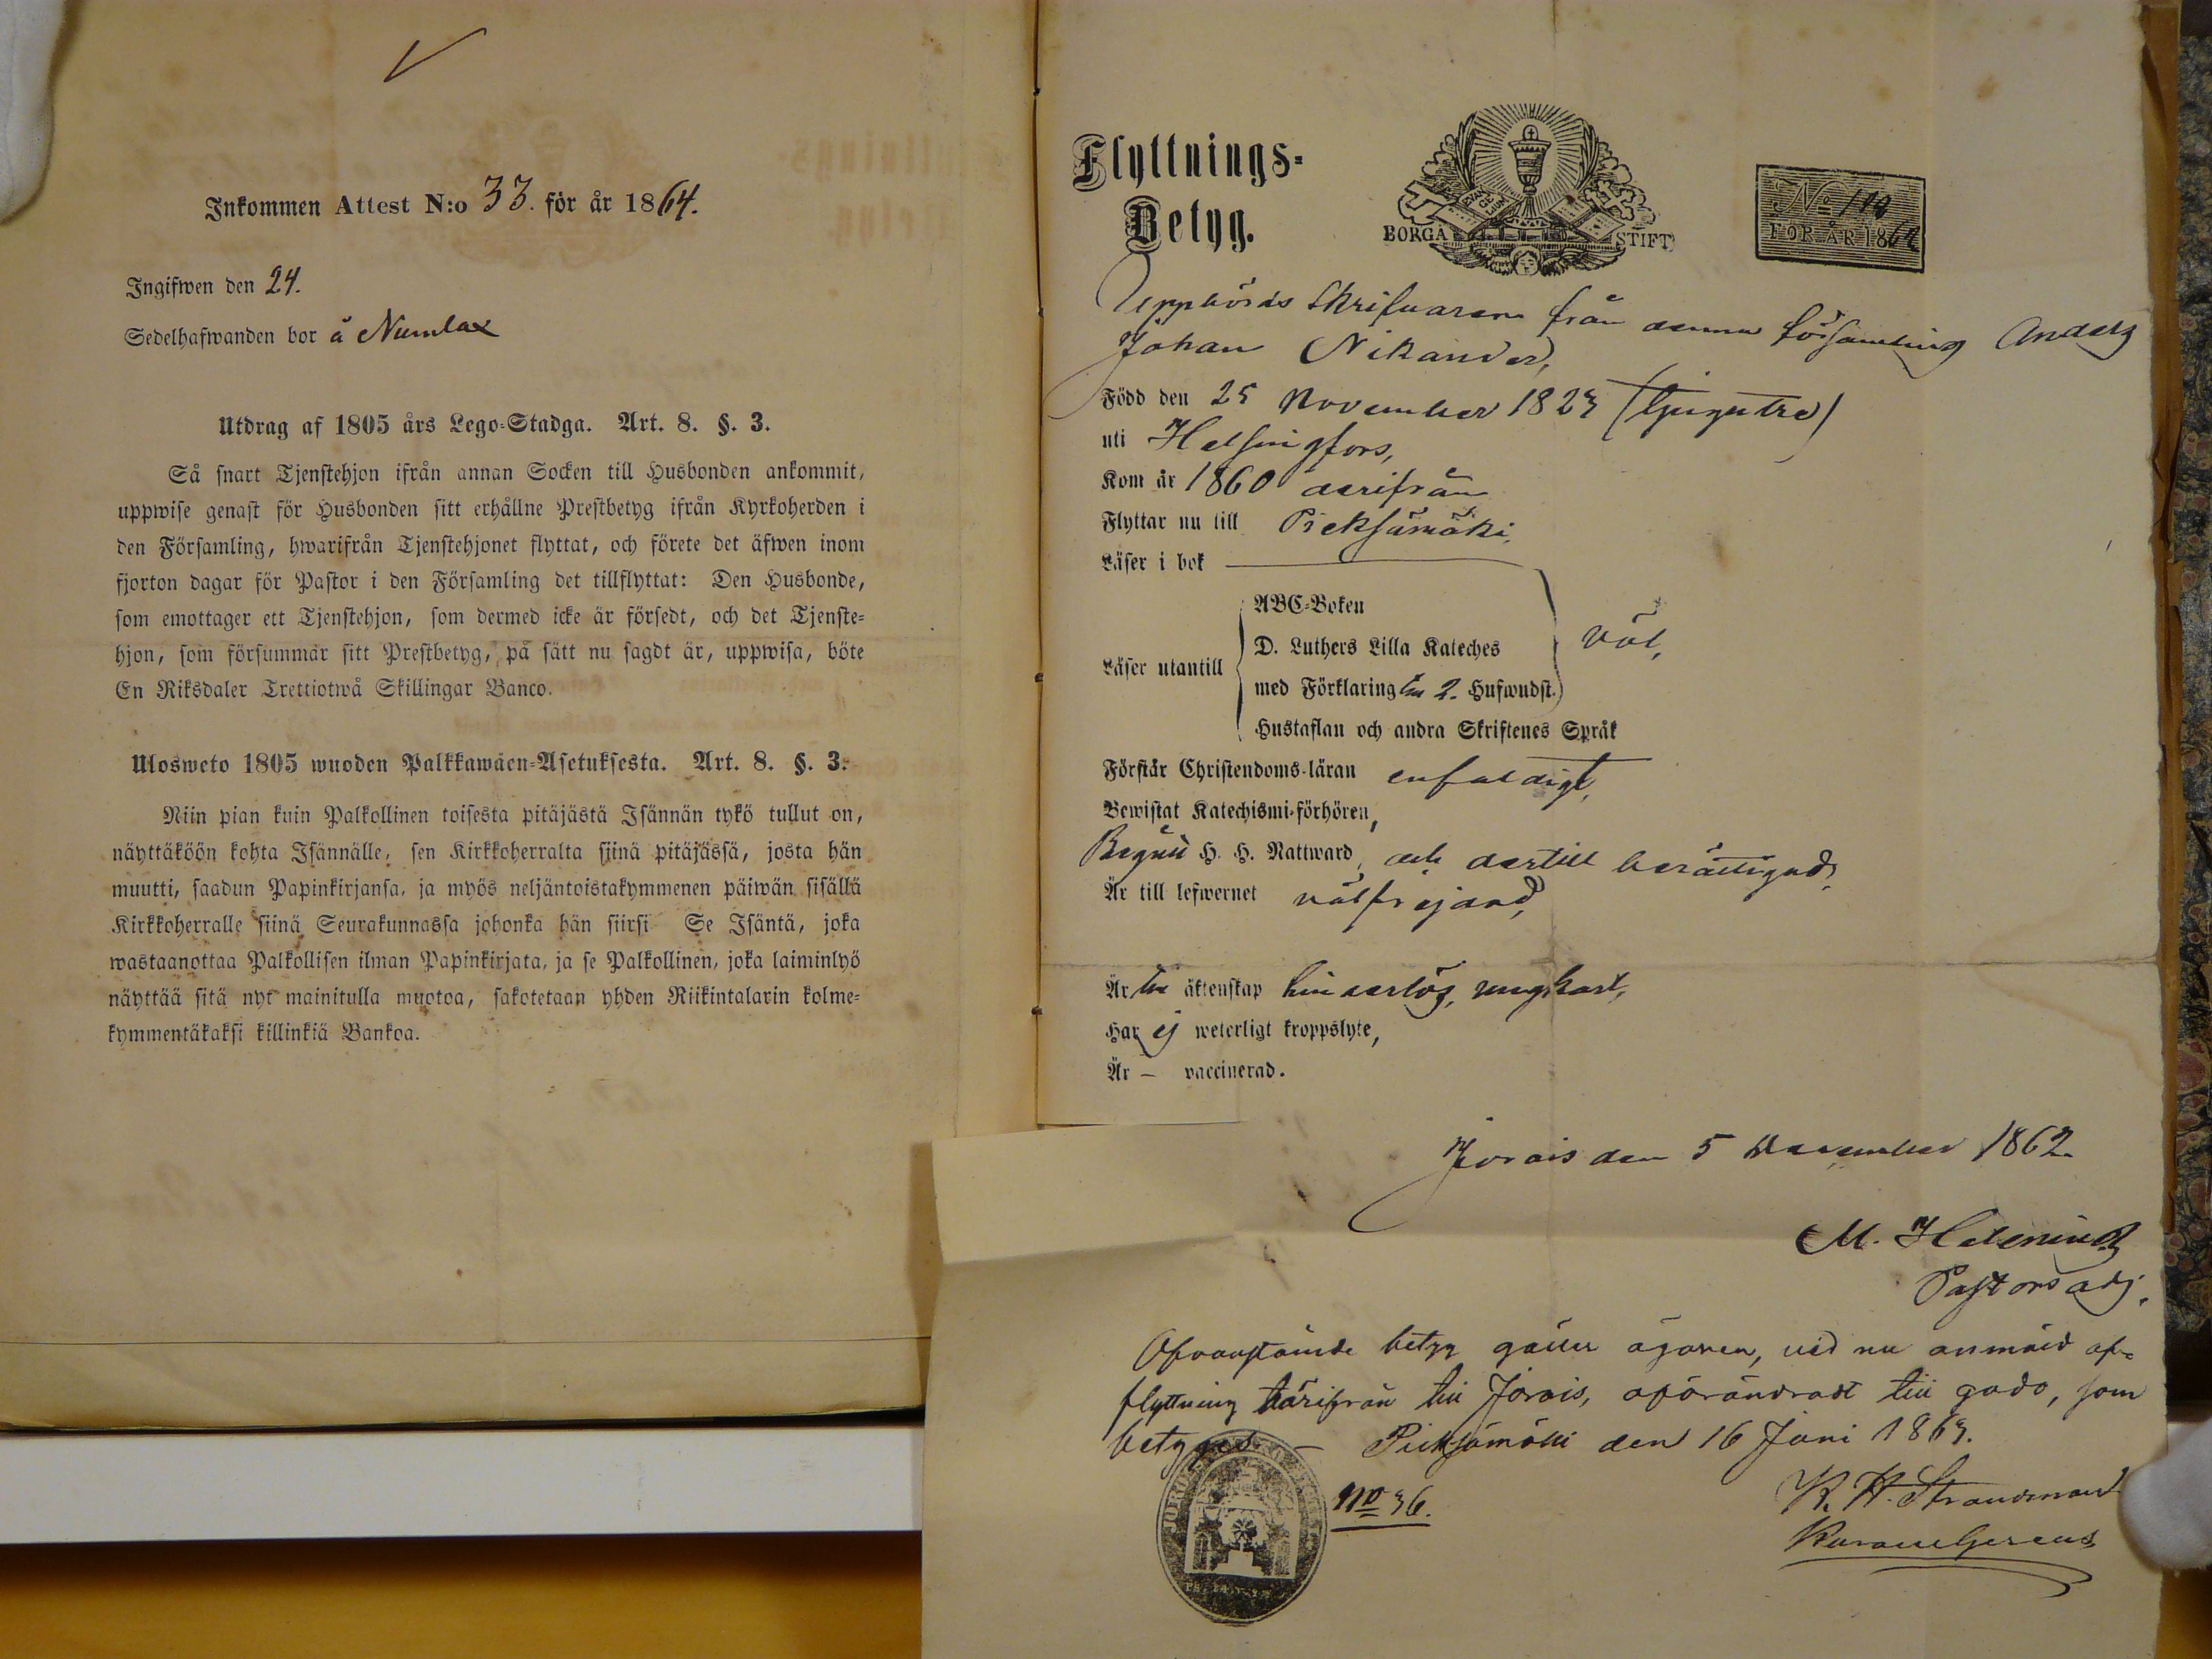 Inkommen Attest N:o 33. för år 1864.
Ingifwen den 24.
Sedelhafwanden bor å Numlax
Utdrag af 1805 års Lego-Stadga. Art. 8. §. 3.
Så snart Tjenstehjon ifrån annan Socken till Husbonden ankommit,
uppwise genast för Husbonden sitt erhållne Prestbetyg ifrån Kyrkoherden i
den Församling, hwarifrån Tjenstehjonet flyttat, och förete det äfwen inom
fjorton dagar för Pastor i den Församling det tillflyttat: Den Husbonde,
som emottager ett Tjenstehjon, som dermed icke är försedt, och det Tjenste-
hjon, som försummar sitt Prestbetyg, på sätt nu sagdt är, uppwisa, böte
En Riksdaler Trettiotwå Skillingar Banco.
Ulosweto 1805 wuoden Palkkawäen-Asetuksesta. Art. 8. §. 3.
Niin pian kuin Palkollinen toisesta pitäjästä Isännän tykö tullut on,
näyttäköön kohta Isännälle, sen Kirkkoherralta siinä pitäjässä, josta hän
muutti, saadun Papinkirjansa, ja myös neljäntoistakymmenen päiwän sisällä
Kirkkoherralle siinä Seurakunnassa johonka hän siirsi Se Isäntä, joka
wastaanottaa Palkollisen ilman Papinkirjata, ja se Palkollinen, joka laiminlyö
näyttää sitä nyt mainitulla muotoa, sakotetaan yhden Riikintalarin kolme-
kymmentäkaksi killinkiä Bankoa.
Flyttnings-
Betyg.
EVAN
GE
LIUM
BORGÅ STIFT
No 110
FÖR ÅR 1862
Uppbörds Skrifvaren från denna församling Anders
Johan Nikander,
Född den 25 November 1823 (tjugutre)
uti Helsingfors,
Kom år 1860 derifrån
Flyttar nu till Pieksämäki,
Läser i bok
Läser utantill
ABC-Boken
D. Luthers Lilla Kateches
med Förklaring till 2. Hufwudst.
Hustaflan och andra Skriftenes Språk
väl,
Förstår Christendoms-läran enfaldigt,
Bewistat Katechismi-förhören,
Begått H. H. Nattward, och dertill berättigad,
Är till lefwernet välfrejdad,
Är till äktenskap hinderlös, ungkarl,
Har ej weterligt kroppslyte,
Är — vaccinerad.
Jorois den 5 December 1862
M.
Pastors adj.
Ofvanstående betyg gäller ägaren, vid nu anmäld af-
flyttning härifrån till Jorois, oförändradt till godo, som
betygas — Pieksämäki den 16 Juni 1863.
No 36.
K. H. Strandman